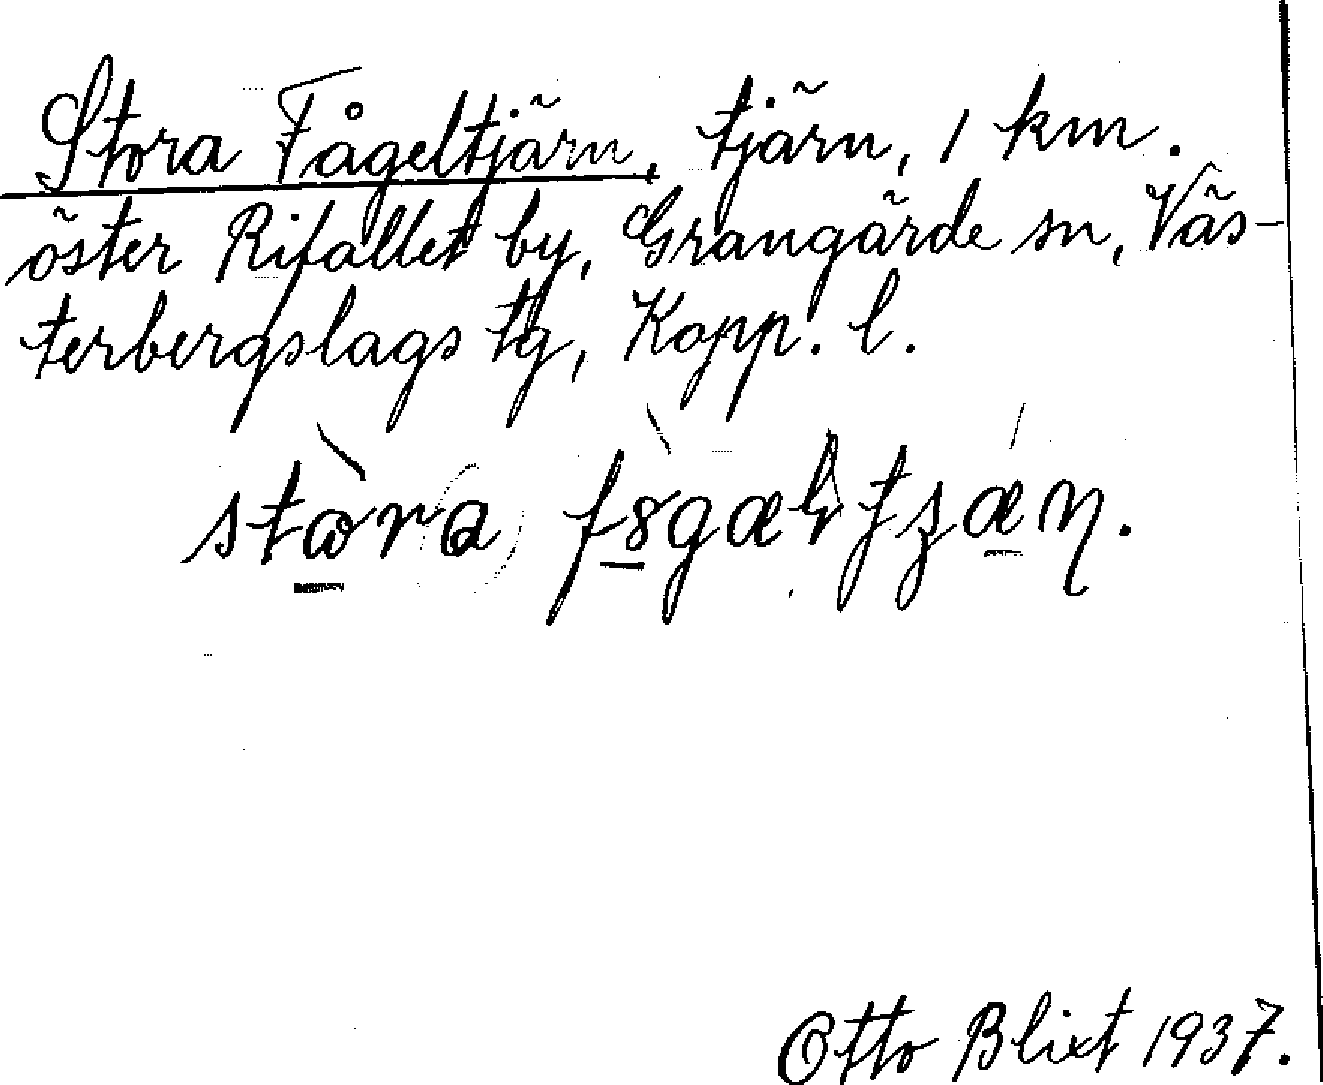 Stora Fågeltjärn, tjärn, 1 km.
öster Rifallet by, Grangärde sn, Väs-
terbergslags tg, Kopp. l.
Otto Blixt 1937.